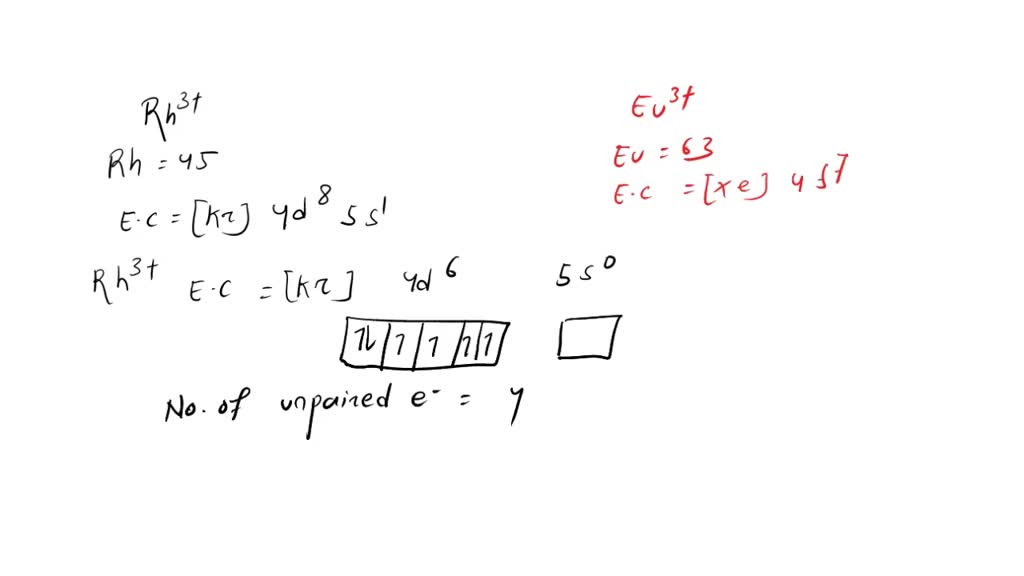 Rh³⁺
Rh = 45
E.C = [Kr] 4d⁸ 5s¹
Rh³⁺ E.C = [Kr] 4d⁶ 5s⁰
1L 1 1 1 1
No. of unpaired e⁻ = 4
Eu³⁺
Eu = 63
E.C = [Xe] 4f⁷